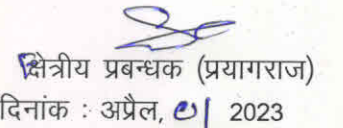 क्षेत्रीय प्रबन्धक (प्रयागराज)
दिनांक : अप्रैल, 2023